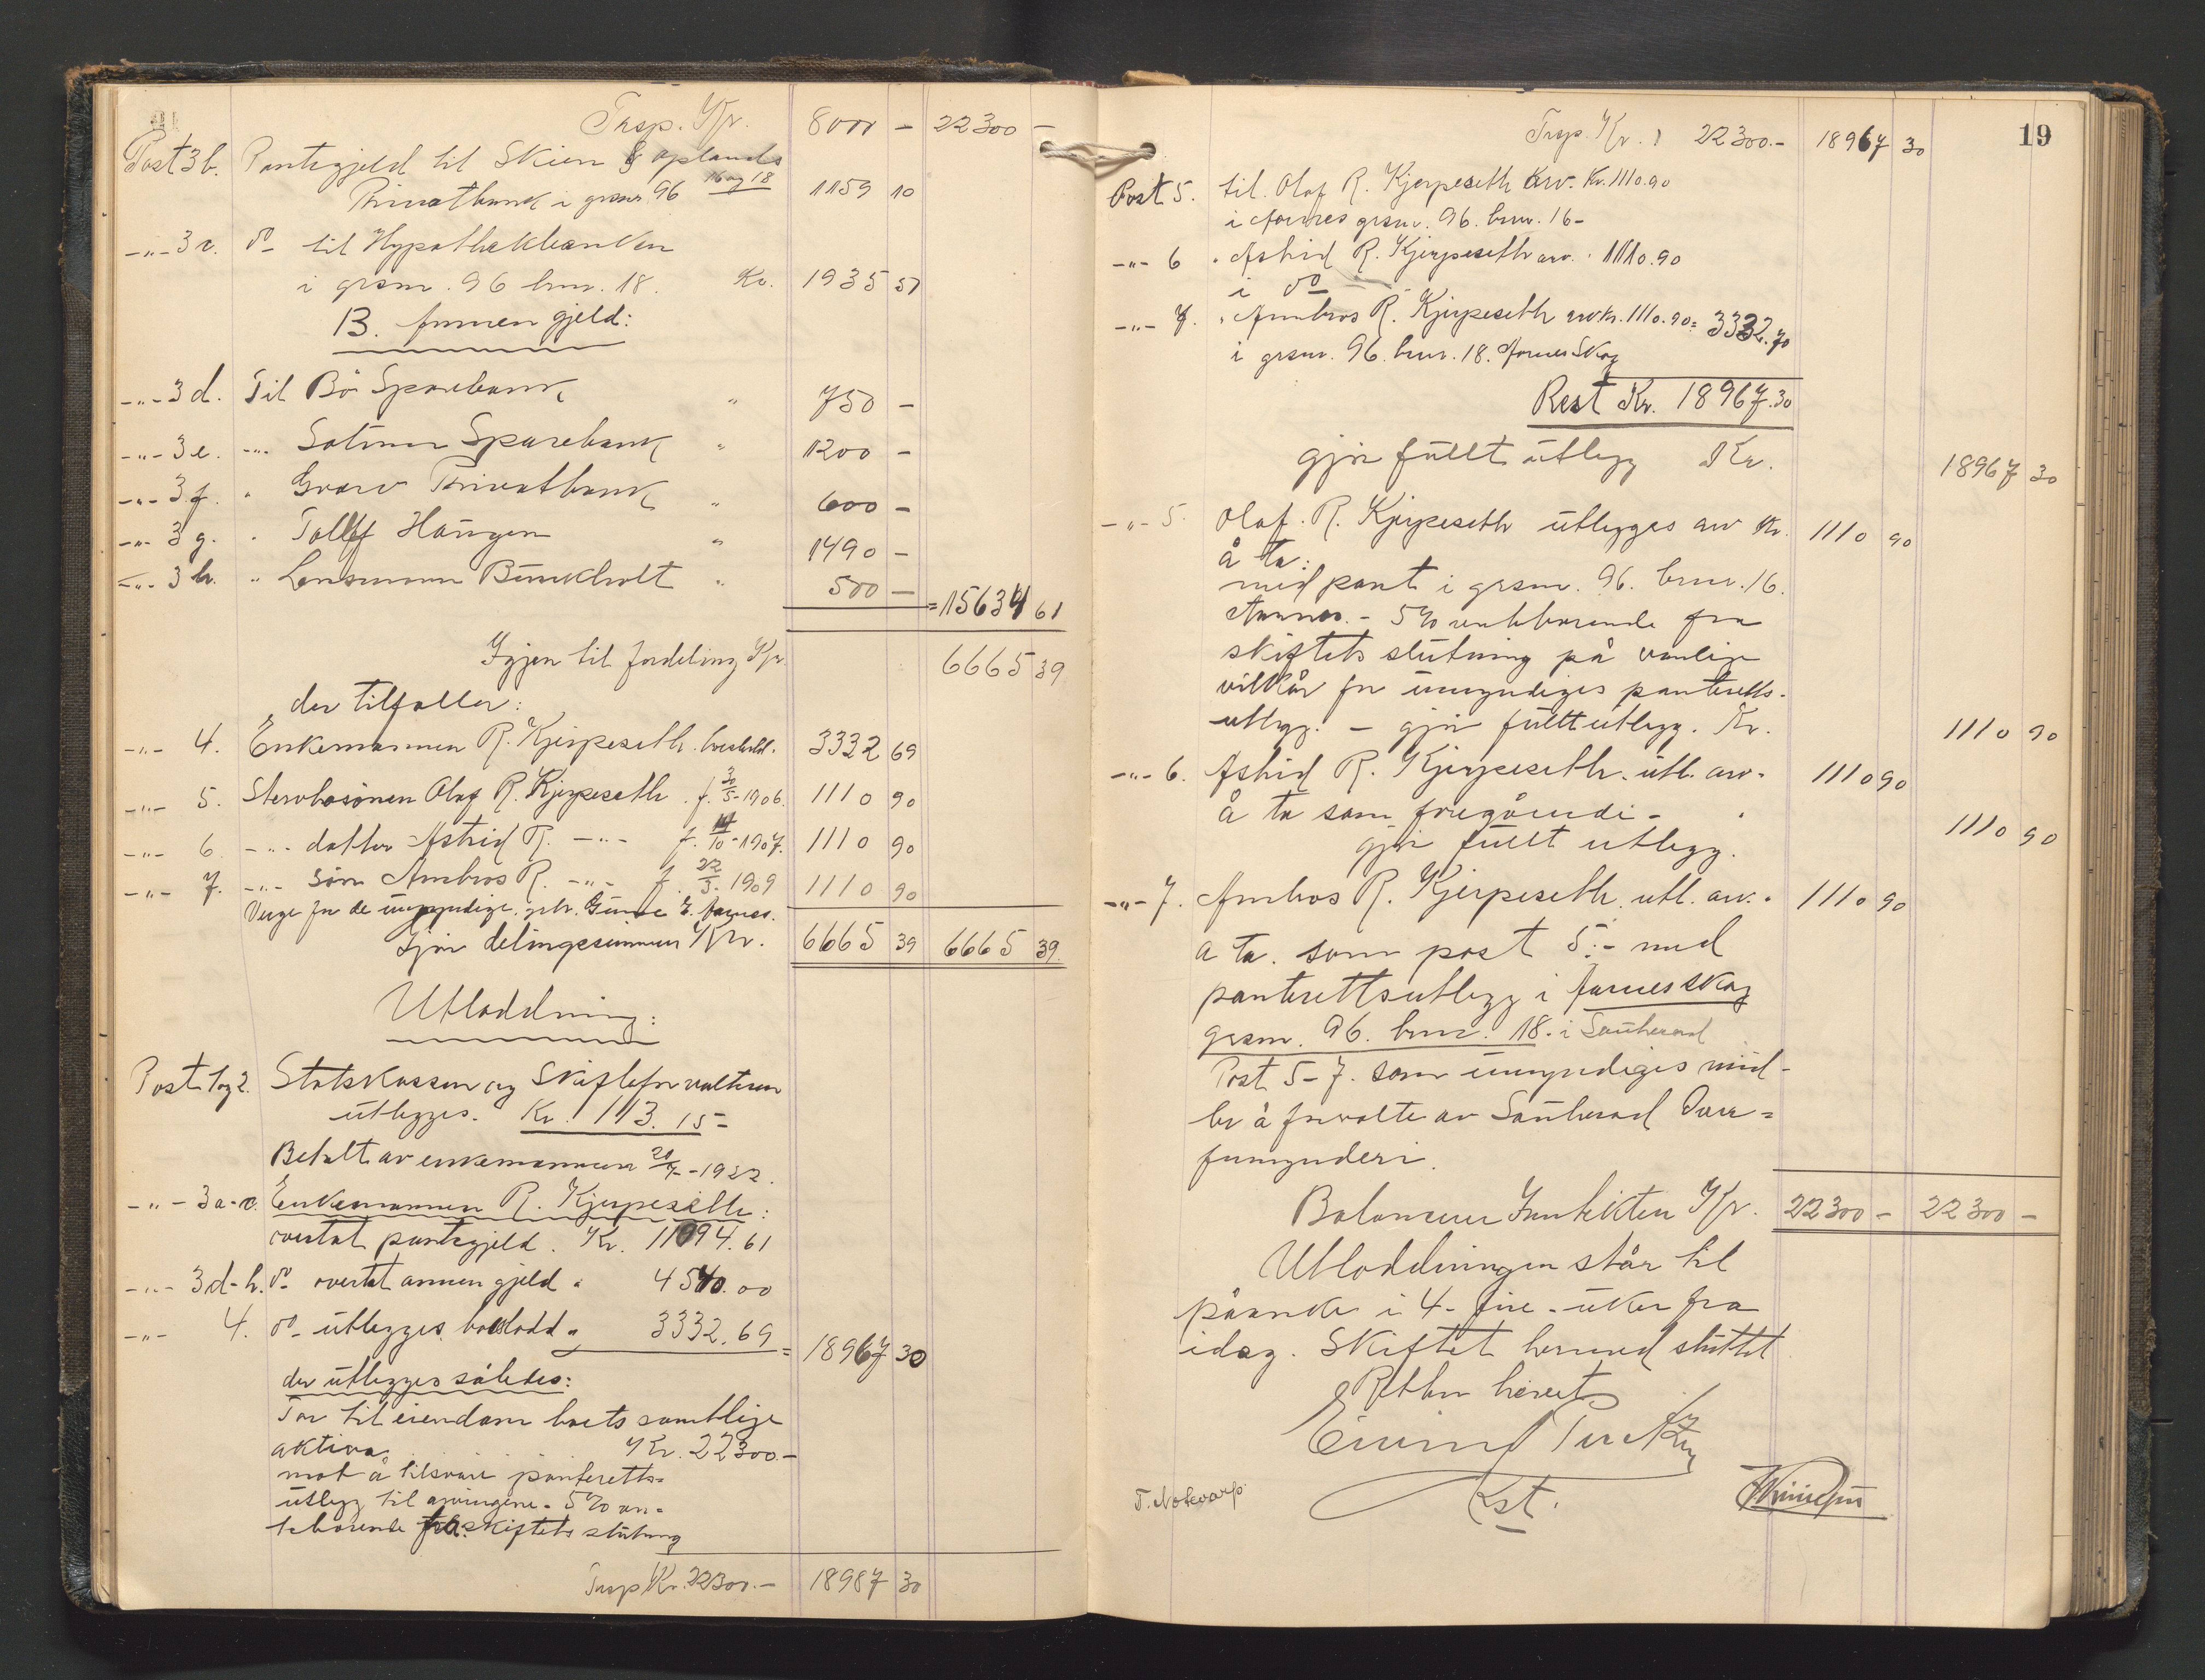 Trsp. Kr. 8000 - 22300 -
Post 3b. Pantegjeld til Skien & oplands
Privatbank i grsnr. 96 16 og 18 1159 10
-"- 3c. do til Hypothekbanken
i grsnr. 96 brnr. 18. Kr. 1935 51
B. Annen gjeld:
-"- 3d. Til Bö Sparebank " 750 -
-"- 3e. -"- Sparebank " 1200 -
-"- 3f. " Gvarv Privatbank " 600 -
-"- 3g. " Tollef Haugen " 1490 -
-"- 3h. " Lensmann Bunkholt " 500 - = 15634 61
Igjen til fordeling Kr. 6665 39
der tilfaller:
-"- 4. Enkemannen R. Kjerpeseth. boeslodd. 3332 69
-"- 5. Stervbosönen Olaf R. Kjerpeseth. f. 30/5-1906. 1110 90
-"- 6. -"- datter Astrid R. -"- f. 14/10-1907. 1110 90
-"- 7. -"- sön Ambros R. -"- f. 22/3-1909 1110 90
Verge for de umyndige, grbr. E. Aarnes.
Gjör delingssummen Kr. 6665 39 6665 39.
Utloddning:
Post 1 og 2. Statskassen og Skifteforvalteren
utlegges. Kr. 113.15-
Betalt av enkemannen 20/7-1922.
-"- 3a-c. Enkemannen R. Kjerpeseth:
overtat pantegjeld. Kr. 11094.61
-"- 3d-h. do overtat annen gjeld " 4540.00
-"- 4. do utlegges boeslodd " 3332.69 = 18967 30
der utlegges således:
Tar til eiendom boets samtlige
aktiva. Kr. 22300.-
mot å tilsvare panteretts-
utlegg til arvingene - 5% ren-
tebærende fra skiftets slutning
Trsp Kr. 22300.- 18987 30
19
Trsp. Kr. 22300.- 18967 30
Post 5. til Olaf R. Kjerpeseth arv. Kr. 1110.90
i Aarnes grsnr. 96. brnr. 16-
-"- 6 " Astrid R. Kjerpeseth arv. " 1110.90
i do
-"- 7. " Ambros R. Kjerpeseth arv kr. 1110.90 = 3332.70
i grsnr. 96. brnr. 18. Aarnes Skog
Rest Kr. 18967.30
gjör fullt utlegg Kr. 18967 30
-"- 5. Olaf. R. Kjerpeseth utlegges arv Kr. 1110 90
å ta:
med pant i grsnr. 96. brnr. 16.
Aarnes. - 5% rentebærende fra
skiftets slutning på vanlige
vilkår for umyndiges panteretts-
utlegg. - gjör fullt utlegg. Kr. 1110 90
-"- 6. Astrid R. Kjerpeseth. utl. arv. 1110 90
å ta som foregående - "
gjör fullt utlegg. 1110 90
-"- 7. Ambros R. Kjerpeseth. utl. arv. " 1110 90
a ta. som post 5.- med
panterettsutlegg i Aarnes skog
grsnr. 96. brnr. 18. i Sauherad
Post 5-7. som umyndiges mid-
ler å forvalte av Sauherad Over=
formynderi.
Balancerer Inntekten Kr. 22300 - 22300 -
Utloddningen står til
påanke i 4- fire - uker fra
idag. Skiftet hermed sluttet
Retten hevet
Eivind
Kst.
T. Nokvarp.